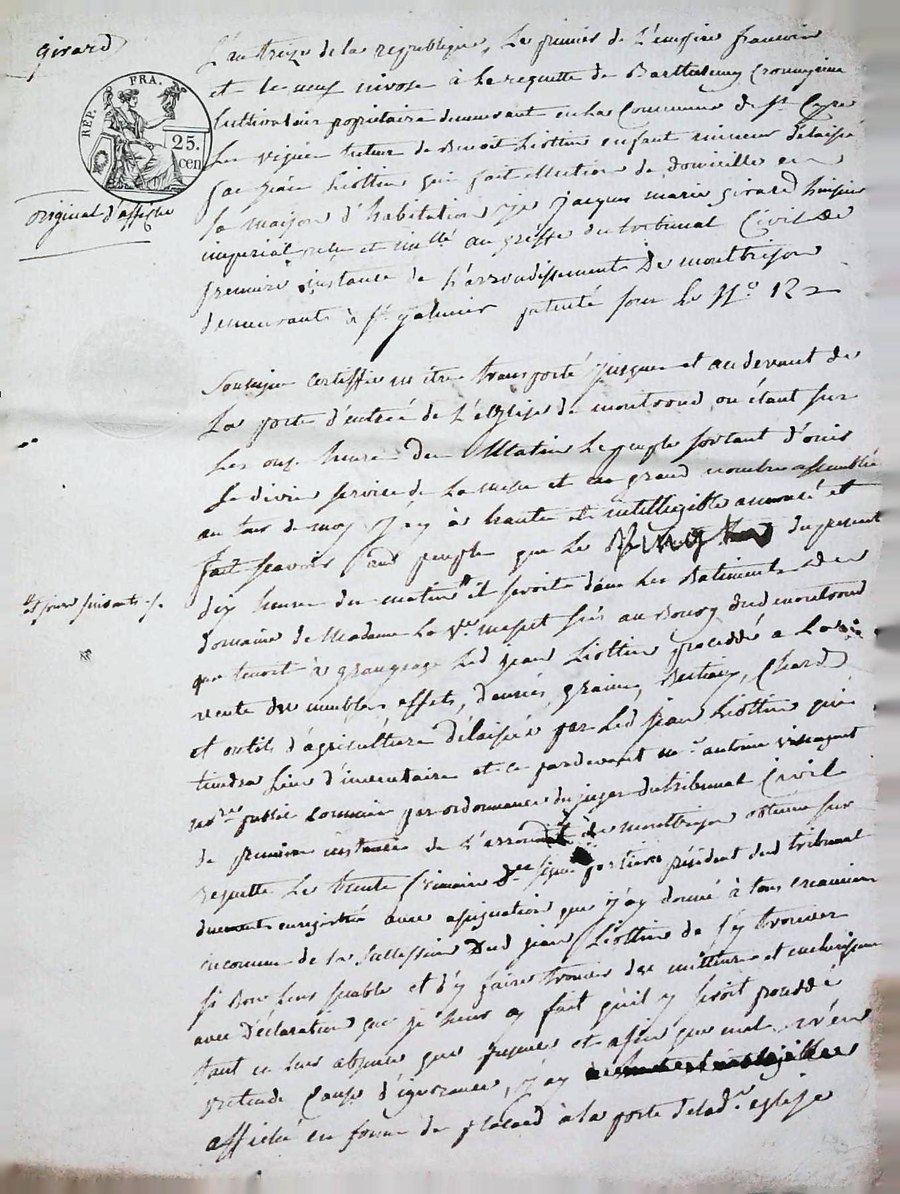 Girard
REP. FRA.
25.
cen
original d'affiche
L'an treize de la republique, Le premier de L'empire francois
et le neuf nivose à la requette de Barthelemy
Cultivateur propriétaire demeurant en la Commune de St Cyr
Les vignes tuteur de Benoit Liottier enfant mineur délaissé
par Jean Liottier qui fait election de domicille en
sa maison d'habitation, je Jacques marie Girard huissier
imperial reçu et au greffe du tribunal Civil de
premiere instance de L'arrondissement De montbrison
demeurant à St galmier patenté sous Le No 122
Soussigné certiffie m'être transporté jusques et au devant de
La porte d'entrée de L'eglise de montrond ou étant sur
Les onze heures du Matin Le peuple sortant d'ouir
Le divin service de La messe et en grand nombre assemblé
au tour de moy j'ay à haute et intelligible annoncé et
fait scavoir aud peuple que Le du présent
dix heures du matin il seroit dans Les Batiments du
et jours suivants
domaine de Madame La Ve situé au Bourg dud montrond
que tenoit à grangeage Led jean Liottier procédé a La
vente des meubles effets, denrées, grains, Bestiaux, Chard
et outils d'agriculture délaissés par Led Jean Liottier qui
tiendra Lieu d'inventaire et ce pardevant me antoine
nore public commis par ordonnance du juger du tribunal Civil
de premiere instance de L'arrondt de montbrison obtenue sur
requette Le trente frimaire Der signée président dud tribunal
duement enregistrée avec assignation que j'ay donné à tous créanciers
en commun de la Succession Dud jean Liottier de s'y trouver
si Bon Leur semble et d'y faire trouver des metteurs et encherisseurs
avec Déclaration que je Leur ay fait qu'il y seroit procédé
tant en Leur absence que présence et afin que nul n'en
pretende Cause d'ignorance, j'ay
affiché en forme de placard à la porte de lade eglise